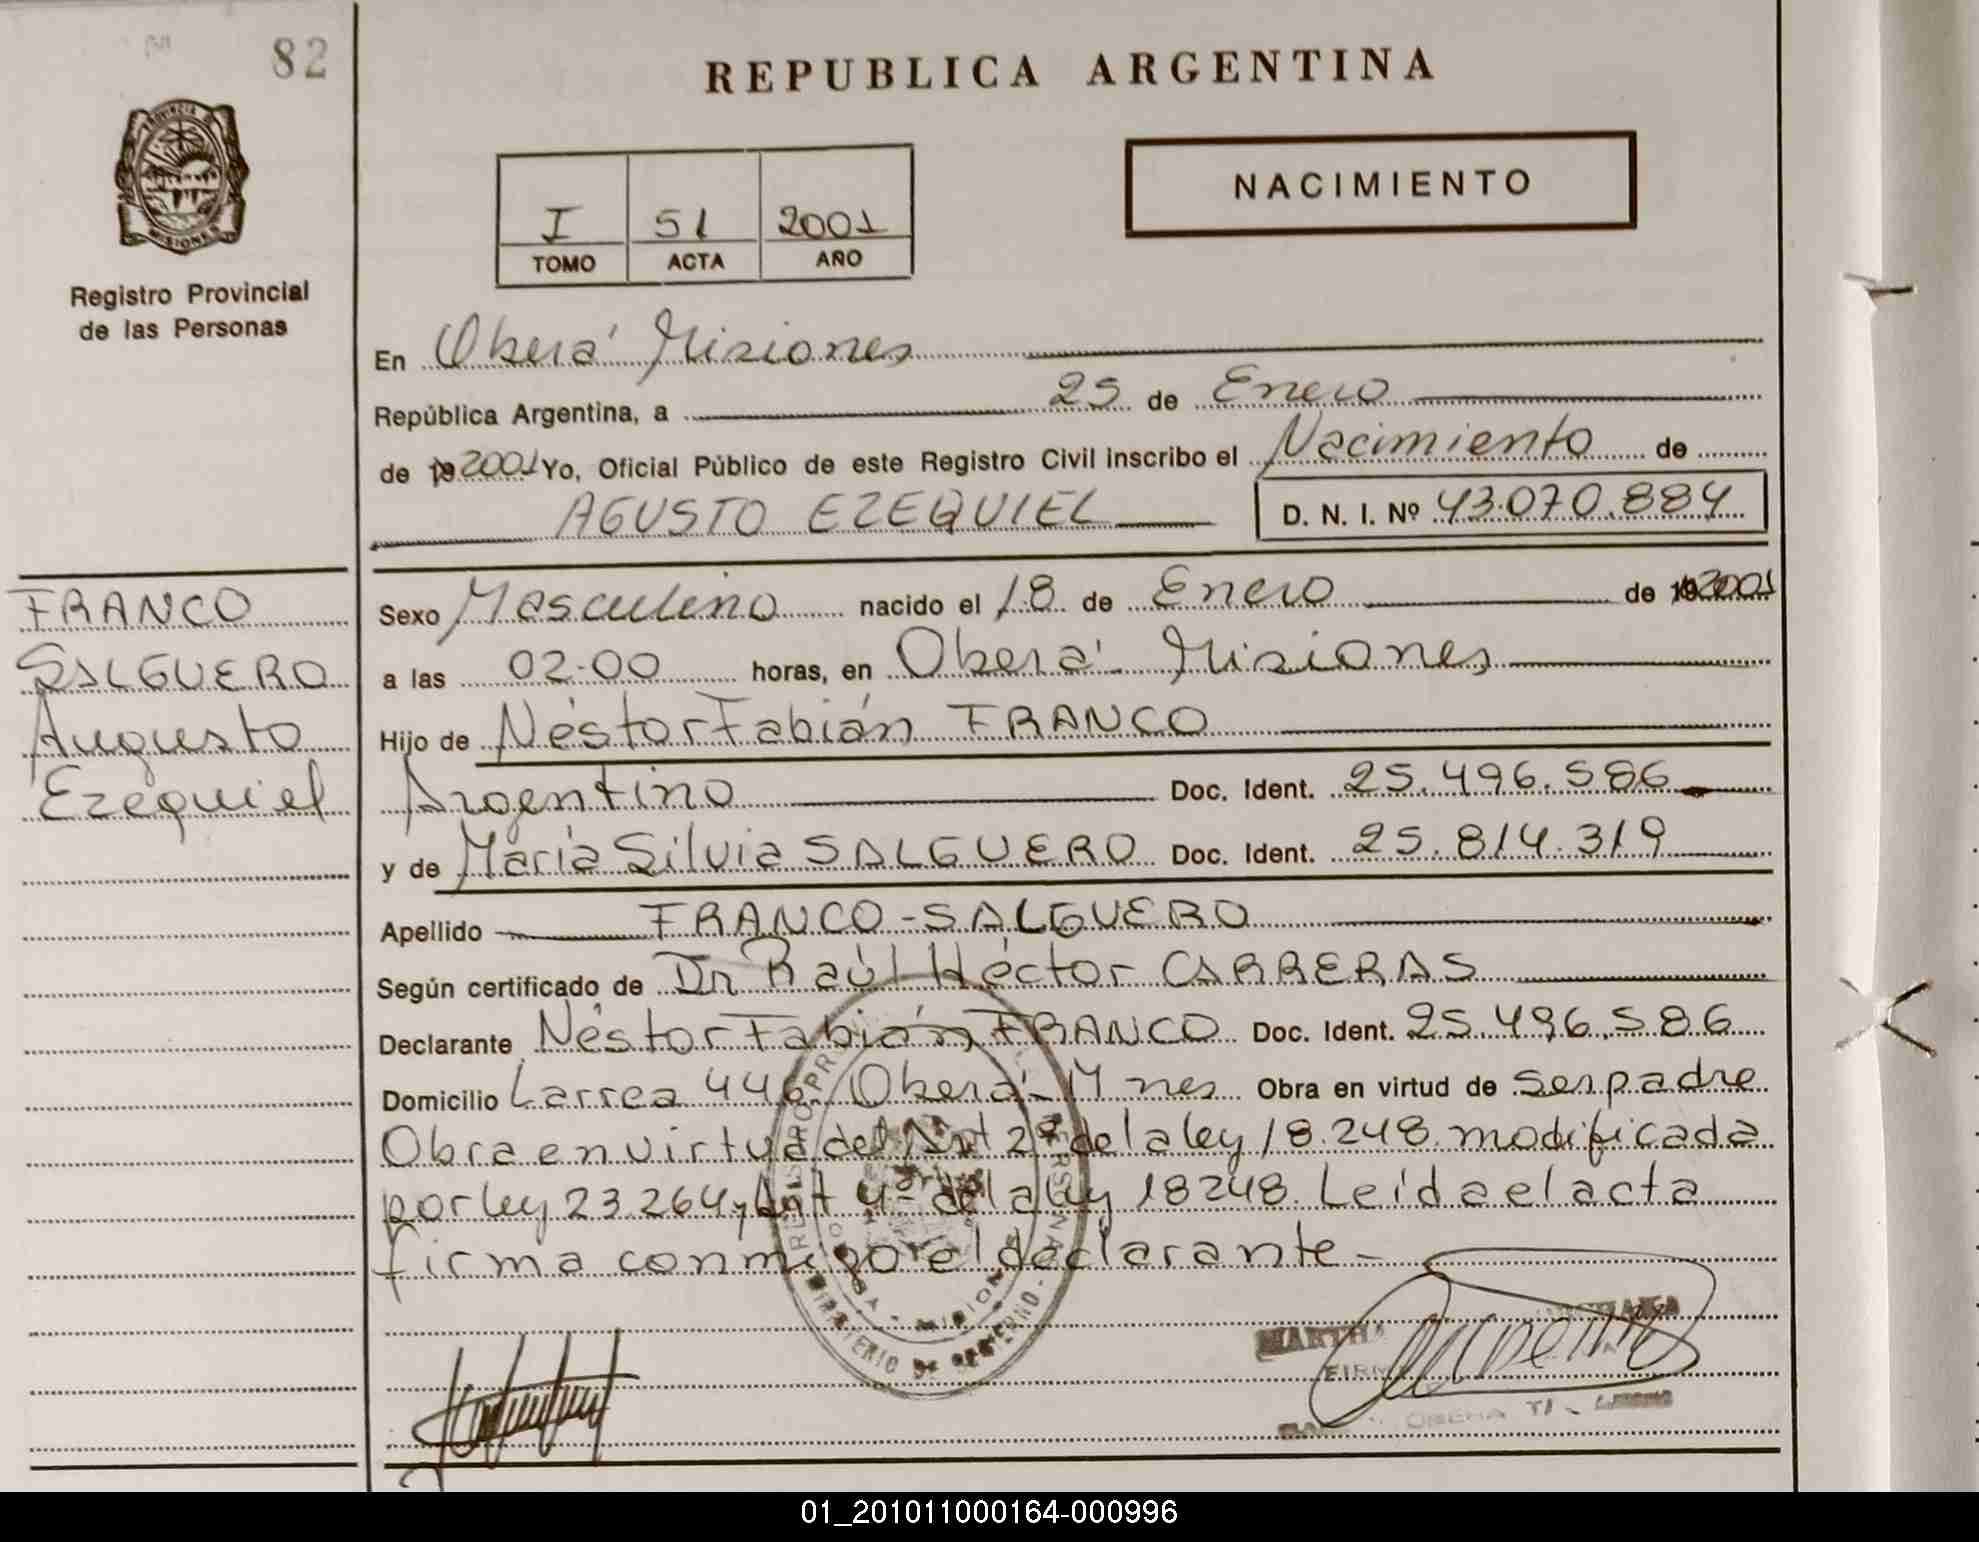 82
REPUBLICA ARGENTINA
PROVINCIA DE
MISIONES
Registro Provincial
de las Personas
NACIMIENTO
I 51 2001
TOMO ACTA AÑO
En Oberá Misiones
República Argentina, a 25 de Enero
de 19 2001 Yo, Oficial Público de este Registro Civil inscribo el Nacimiento de
AGUSTO EZEQUIEL D. N. I. Nº 43.070.884
FRANCO
SALGUERO
Augusto
Ezequiel
Sexo Masculino nacido el 18 de Enero de 19 2001
a las 02.00 horas, en Oberá - Misiones
Hijo de Néstor Fabián FRANCO
Argentino Doc. Ident. 25.496.586
y de María Silvia SALGUERO Doc. Ident. 25.814.319
Apellido FRANCO - SALGUERO
Según certificado de Dr Raúl Héctor CARRERAS
Declarante Néstor Fabián FRANCO Doc. Ident. 25.496.586
Domicilio Larrea 446 Oberá - Mnes Obra en virtud de ser padre
Obra en virtud del Art 2º de la ley 18.248 modificada
por ley 23.264 y Art 4º de la ley 18248. Leída el acta
firma conmigo el declarante -
MINISTERIO DE GOBIERNO
MARTHA
01_201011000164-000996